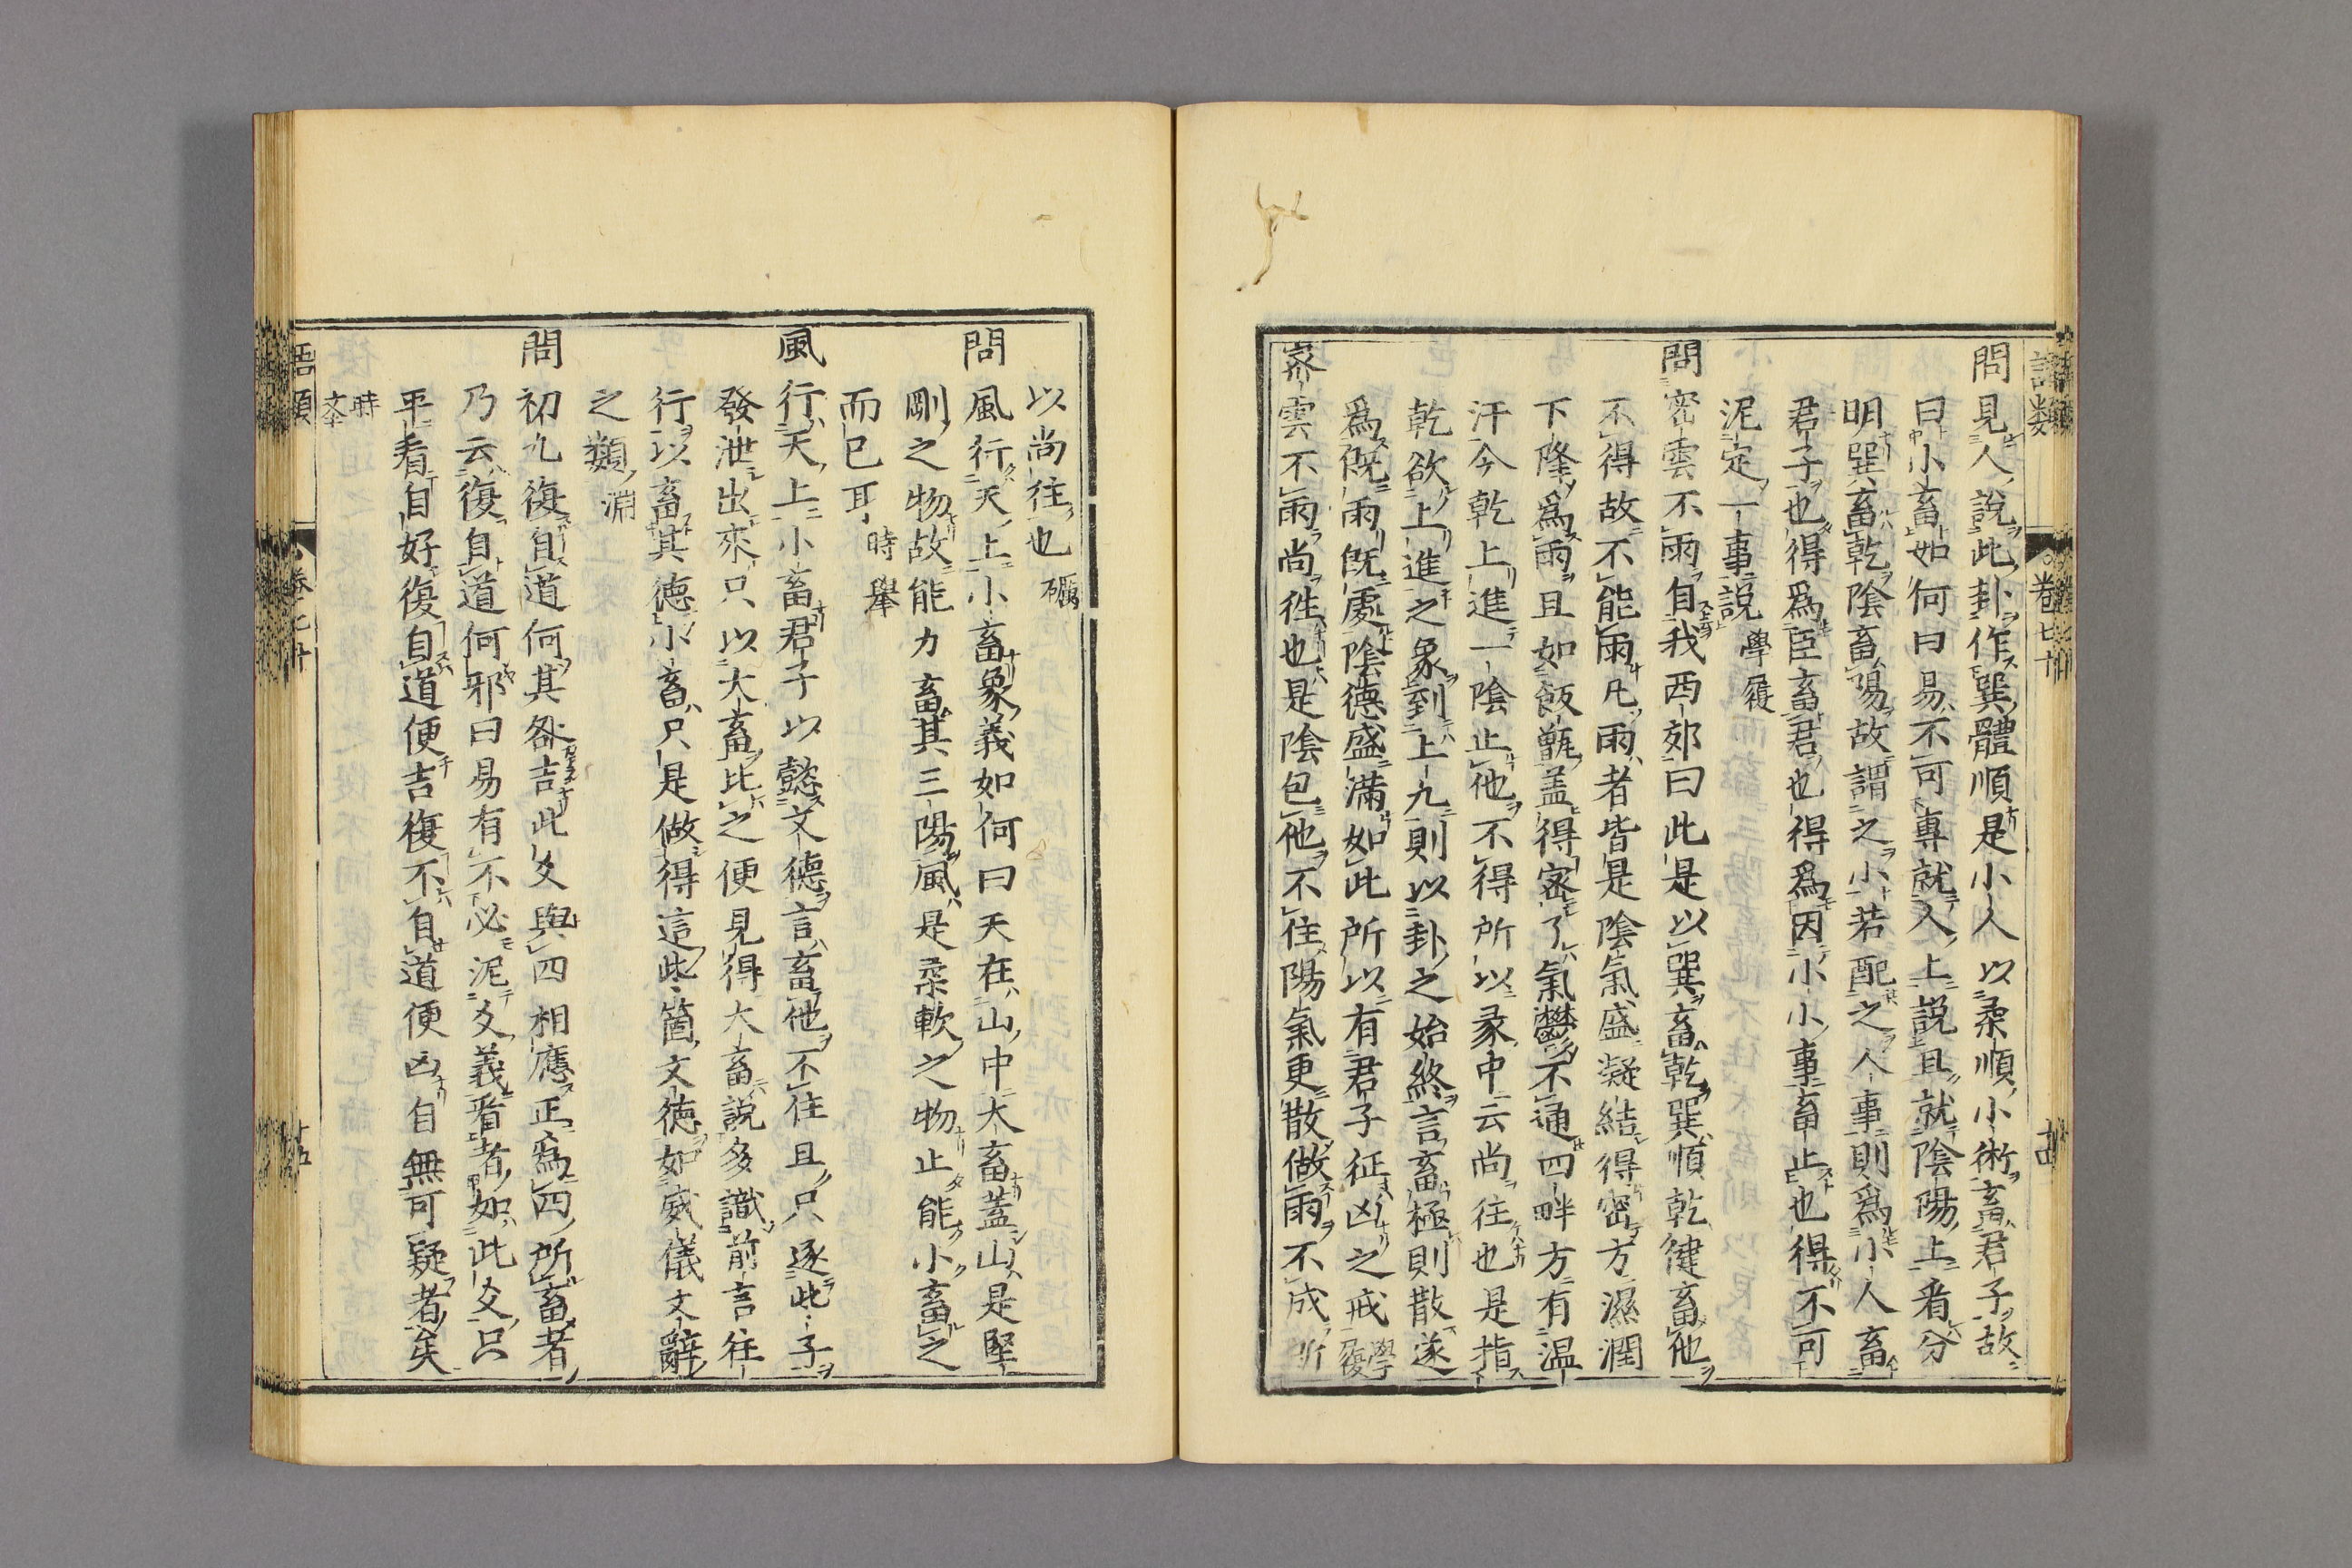 語類
卷七十
十四
問見人說此卦作巽體順是小人以柔順小術畜君子故
曰小畜如何曰易不可專就人上説且就陰陽上看分
明巽畜乾陰畜陽故謂之小若配之人事則爲小人畜
君子也得爲臣畜君也得爲因小小事畜止也得不可
泥定一事説 學履
問密雲不雨自我西郊曰此是以巽畜乾巽順乾健畜他
不得故不能雨凡雨者皆是陰氣盛凝結得密方濕潤
下降爲雨且如飯甑盖得密了氣鬱不通四畔方有温
汗今乾上進一陰止他不得所以彖中云尚往也是指
乾欲上進之象到上九則以卦之始終言畜極則散遂
爲既雨既處陰德盛滿如此所以有君子征凶之戒 學履
密雲不雨尚往也是陰包他不住陽氣更散做雨不成所
以尚往也 礪
問風行天上小畜象義如何曰天在山中大畜蓋山是堅
剛之物故能力畜其三陽風是柔軟之物止能小畜之
而已耳 時舉
風行天上小畜君子以懿文德言畜他不住且只逐此子
發泄出來只以大畜比之便見得大畜說多識前言往
行以畜其德小畜只是做得這此箇文德如威儀文辭
之類 淵
問初九復自道何其咎吉此爻與四相應正爲四所畜者
乃云復自道何邪曰易有不必泥爻義看者如此爻只
平看自好復自道便吉復不自道便凶自無可疑者矣
時
文本
語類
卷七十
十五